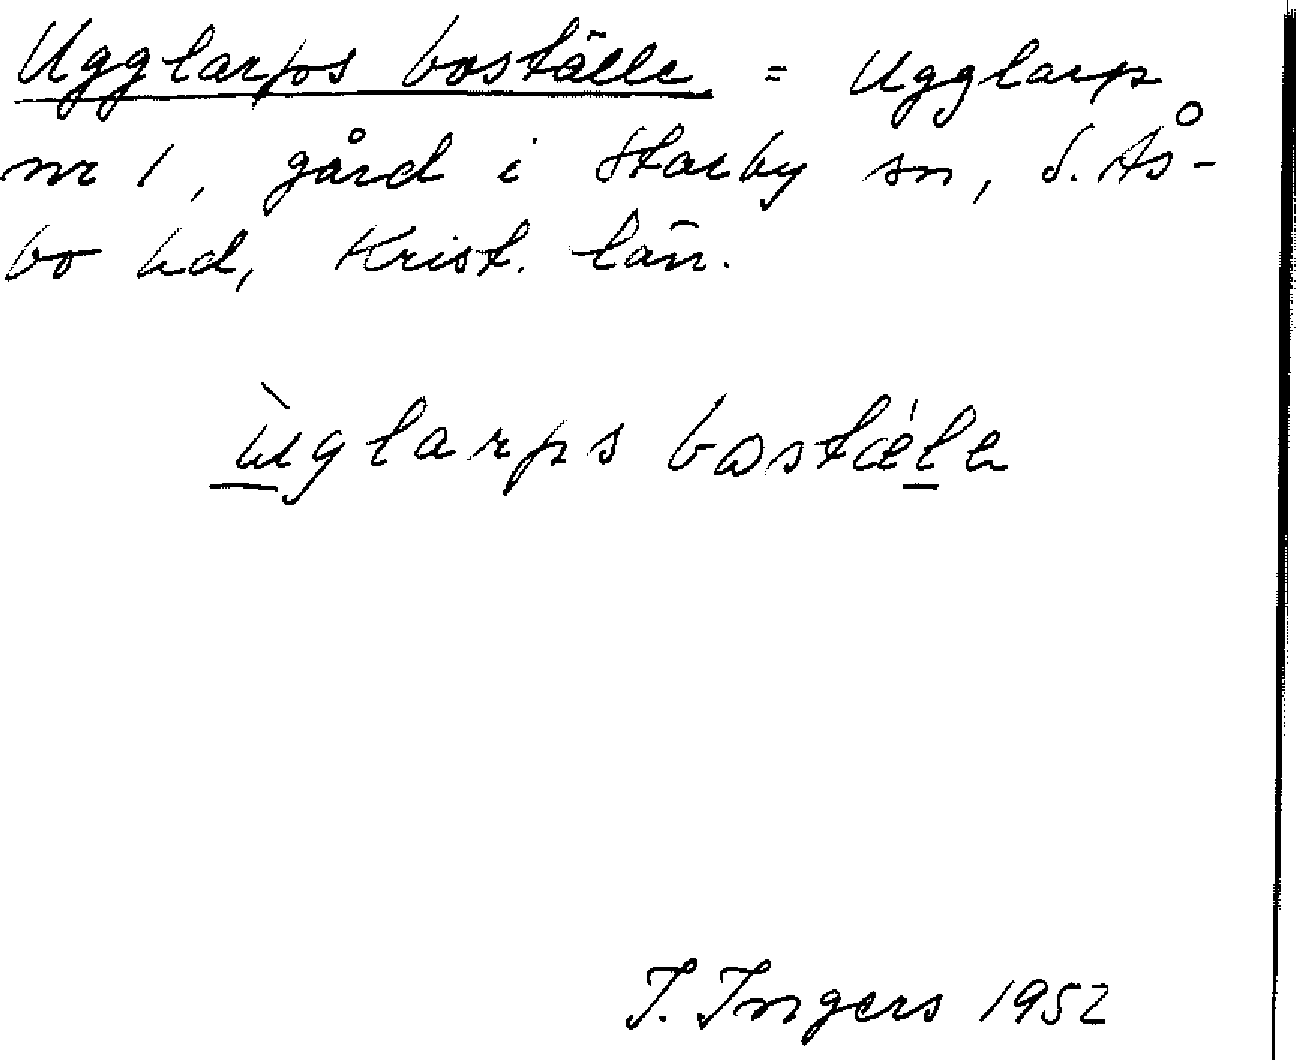 Ugglarps boställe = Ugglarp
nr 1, gård i Starby sn, S. Ås-
bo hd, Krist. län.
ùglarps bostǽle
I. Ingers 1952